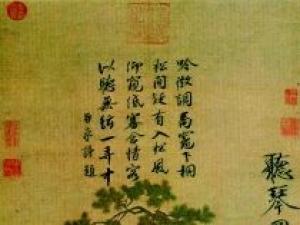 聽琴
吟徵調商竈下桐
松間疑有入松風
仰窺低審含情客
以聽無絃一弄中
臣京謹題